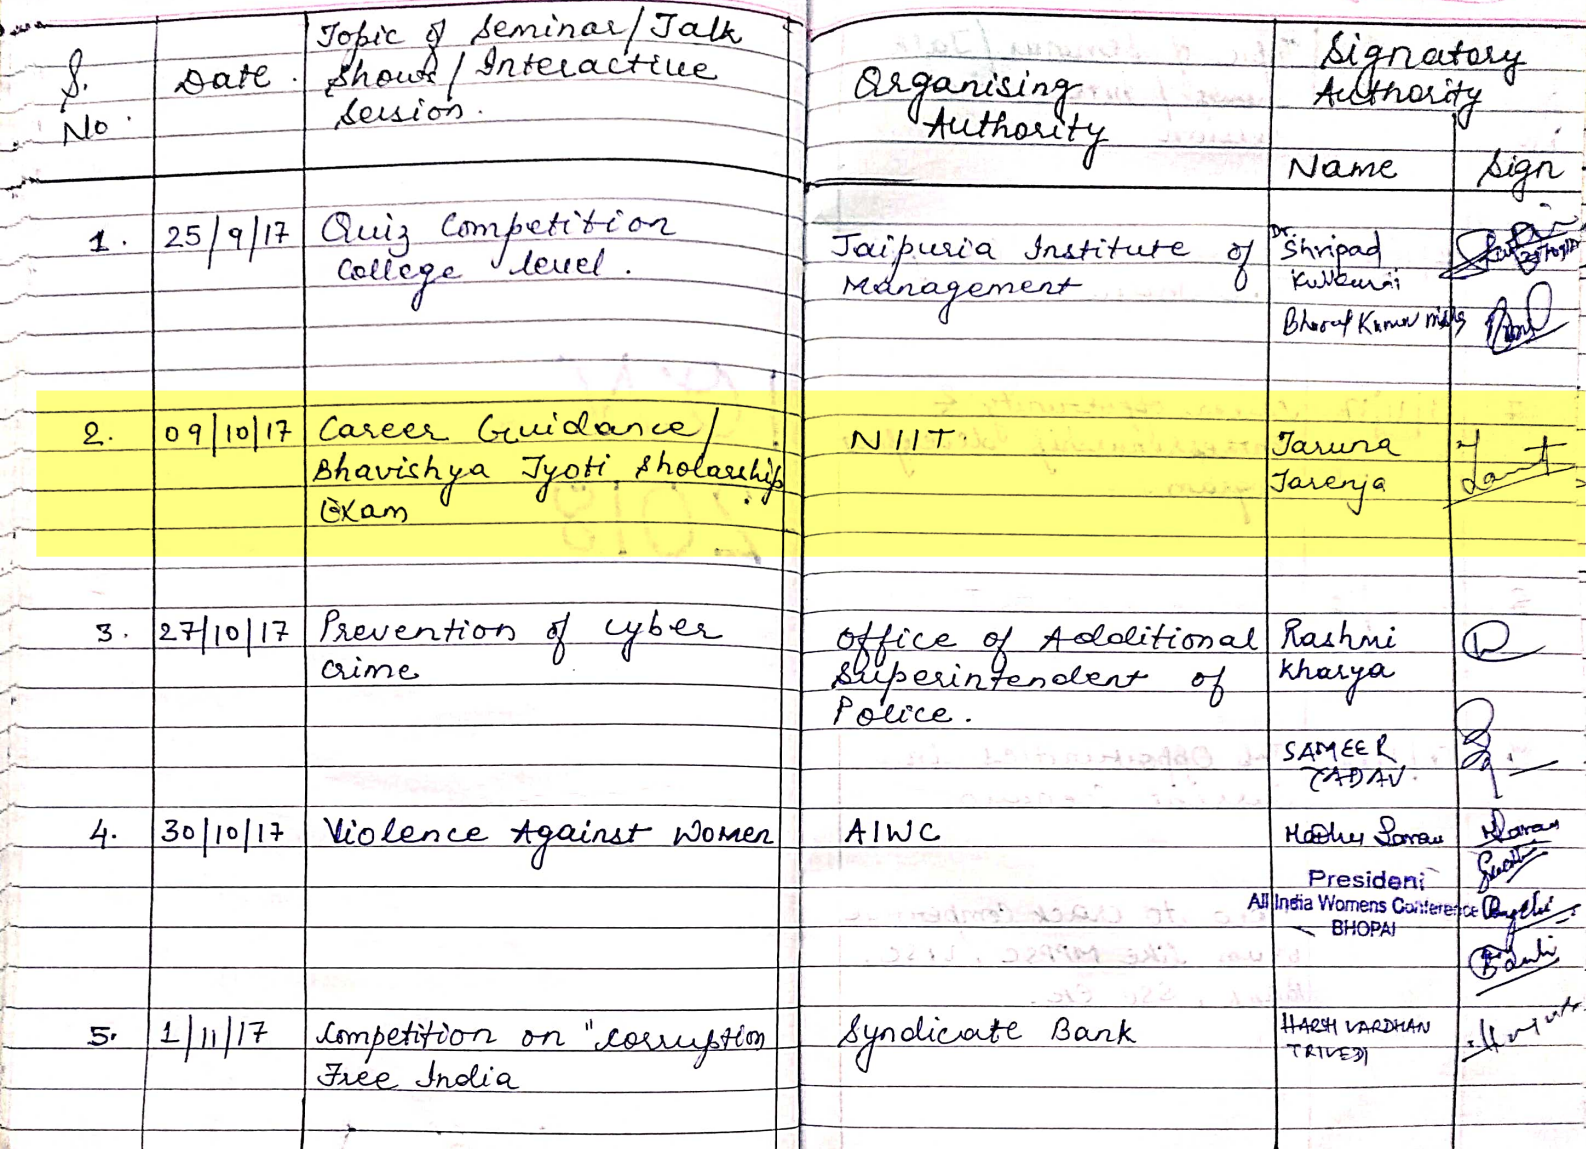 S. No.
Date.
Topic of Seminar/Talk
Shows/Interactive
Session.
Organising
Authority
Signatory
Authority
Name
Sign
1. 25/9/17 Quiz Competition
College level.
Jaipuria Institute of
Management
Dr.
Shripad
Kulkarni
Bharat Kumar
2. 09/10/17 Career Guidance/
Bhavishya Jyoti Sholarship
Exam.
NIIT
Taruna
Tarenja
3. 27/10/17 Prevention of cyber
crime
Office of Additional
Superintendent of
Police.
Rashmi
Kharya
SAMEER
YADAV.
4. 30/10/17 Violence Against Women
AIWC
President
All India Womens Conference
BHOPAL
5. 1/11/17 Competition on "Corruption
Free India
Syndicate Bank
HARSH VARDHAN
TRIVEDI